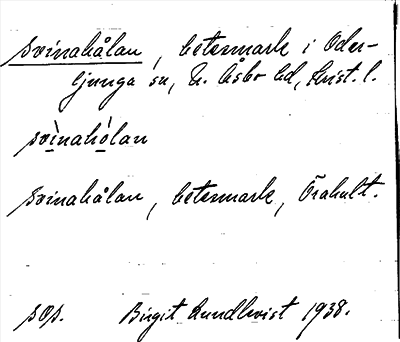 Svinahålan, betesmark i Oder-
ljunga sn, N. Åsbo hd, Krist. l.
svìnahólan
Svinahålan, betesmark, Örahult.
sop. Birgit Lundkvist 1938.